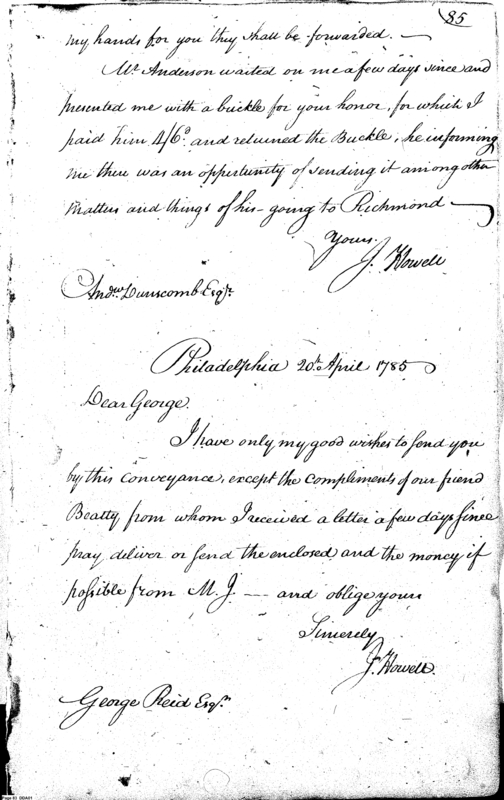 85
my hands for you they shall be forwarded. —
Mr. Anderson waited on me a few days since and
presented me with a buckle for your honor, for which I
paid him 4/6d. and returned the Buckle, he informing
me there was an oppertunity of sending it among other
matters and things of his - going to Richmond —
Yours.
J. Howell
Andw. Dunscomb Esqr.
Philadelphia 20th April 1785
Dear George.
I have only my good wishes to send you
by this conveyance, except the compliments of our friend
Beatty from whom I received a letter a few days since
pray deliver or send the enclosed and the money if
possible from M. J. — and oblige yours
Sincerely
J. Howell.
George Reid Esqr.